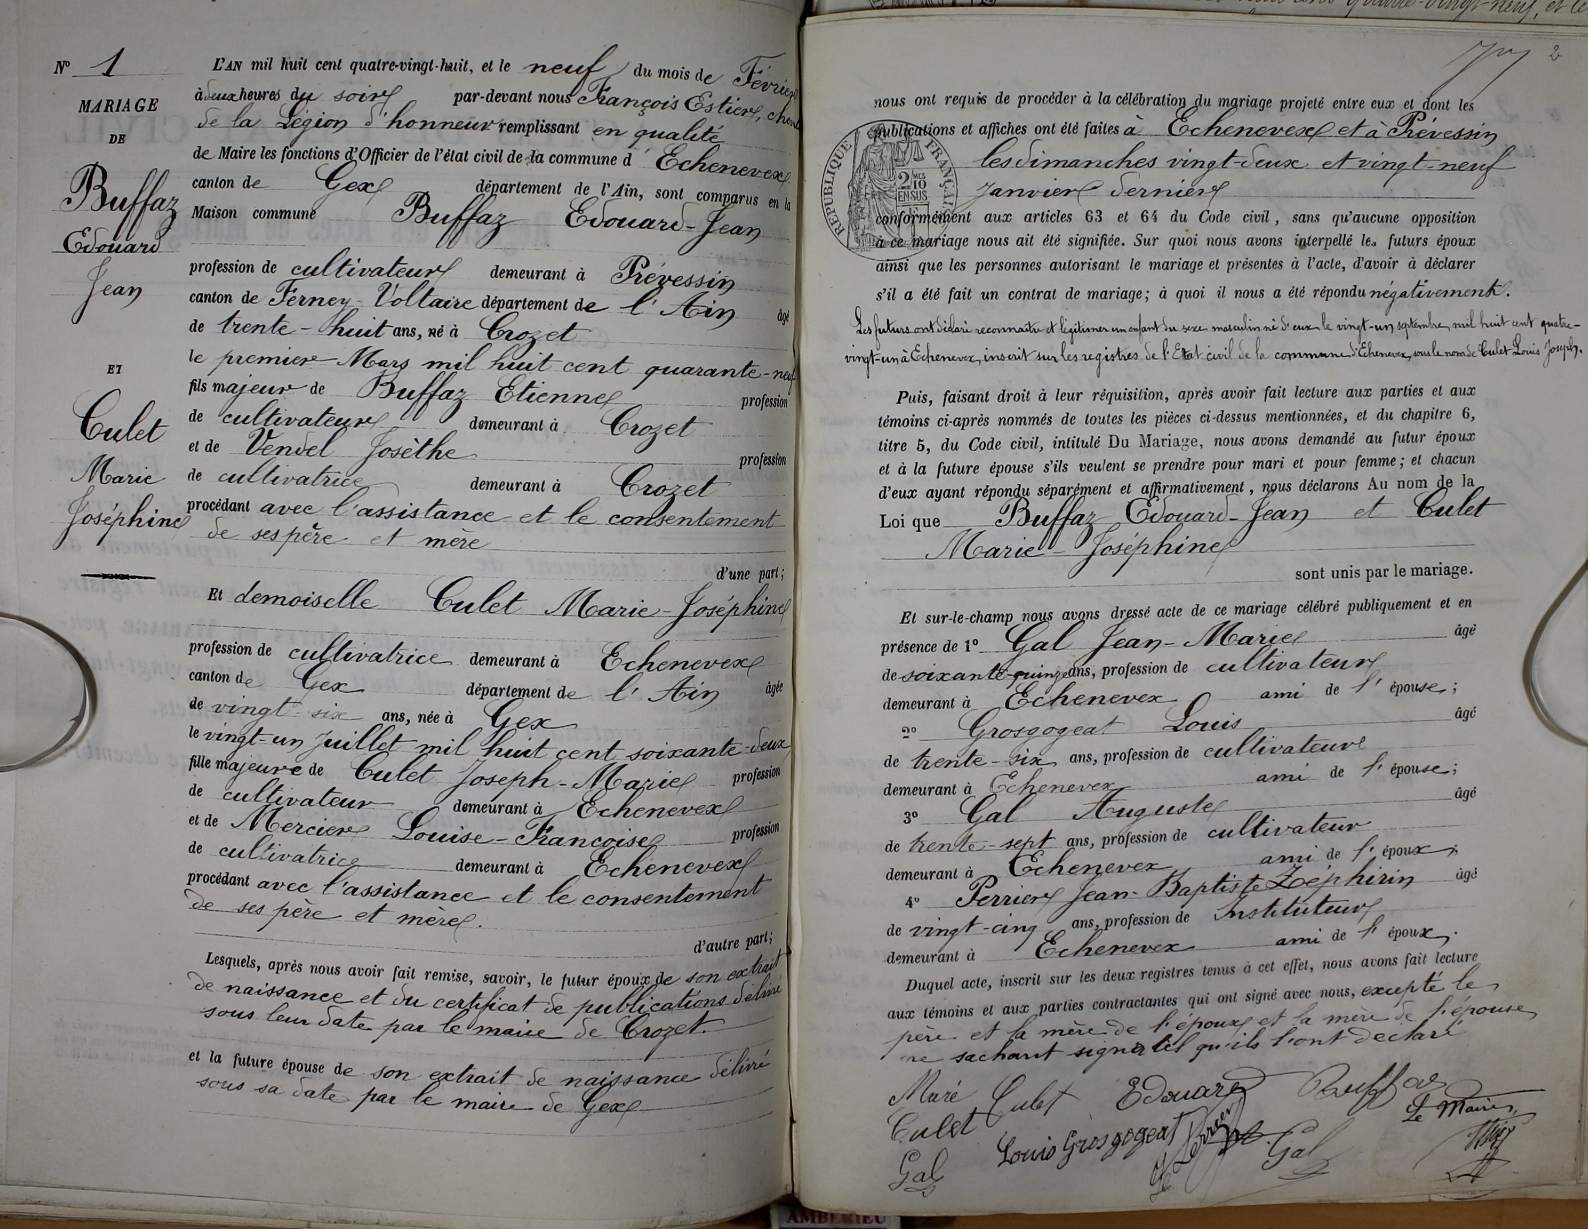 Nº 1
MARIAGE
DE
Buffaz
Edouard
Jean
ET
Culet
Marie
Joséphine
L'AN mil huit cent quatre-vingt-huit, et le neuf du mois de Février
à deux heures du soir par-devant nous François Estier, chev
de la Légion d'honneur remplissant en qualité
de Maire les fonctions d'Officier de l'état civil de la commune d'Echenevex
canton de Gex département de l'Ain, sont comparus en la
Maison commune Buffaz Edouard-Jean
profession de cultivateur demeurant à Prévessin
canton de Ferney-Voltaire département de l'Ain âgé
de trente-huit ans, né à Crozet
le premier Mars mil huit cent quarante-neuf
fils majeur de Buffaz Etienne profession
de cultivateur demeurant à Crozet
et de Vendel Josèthe profession
de cultivatrice demeurant à Crozet
procédant avec l'assistance et le consentement
de ses père et mère
d'une part;
Et demoiselle Culet Marie-Joséphine
profession de cultivatrice demeurant à Echenevex
canton de Gex département de l'Ain âgée
de vingt-six ans, née à Gex
le vingt-un Juillet mil huit cent soixante-deux
fille majeure de Culet Joseph-Marie profession
de cultivateur demeurant à Echenevex
et de Mercier Louise-Françoise profession
de cultivatrice demeurant à Echenevex
procédant avec l'assistance et le consentement
de ses père et mère.
d'autre part;
Lesquels, après nous avoir fait remise, savoir, le futur époux de son extrait
de naissance et du certificat de publications délivré
sous leur date par le maire de Crozet.
et la future épouse de son extrait de naissance délivré
sous sa date par le maire de Gex
2
nous ont requis de procéder à la célébration du mariage projeté entre eux et dont les
publications et affiches ont été faites à Echenevex et à Prévessin
les dimanches vingt-deux et vingt-neuf
Janvier dernier
RÉPUBLIQUE FRANÇAISE
2 MES
10
EN SUS
conformément aux articles 63 et 64 du Code civil, sans qu'aucune opposition
à ce mariage nous ait été signifiée. Sur quoi nous avons interpellé les futurs époux
ainsi que les personnes autorisant le mariage et présentes à l'acte, d'avoir à déclarer
s'il a été fait un contrat de mariage; à quoi il nous a été répondu négativement.
Les futurs ont déclaré reconnaître et légitimer un enfant du sexe masculin né d'eux le vingt-un septembre mil huit cent quatre-
vingt-un à Echenevex, inscrit sur les registres de l'Etat civil de la commune d'Echenevex, sous le nom de Culet Louis Joseph.
Puis, faisant droit à leur réquisition, après avoir fait lecture aux parties et aux
témoins ci-après nommés de toutes les pièces ci-dessus mentionnées, et du chapitre 6,
titre 5, du Code civil, intitulé Du Mariage, nous avons demandé au futur époux
et à la future épouse s'ils veulent se prendre pour mari et pour femme; et chacun
d'eux ayant répondu séparément et affirmativement, nous déclarons Au nom de la
Loi que Buffaz Edouard-Jean et Culet
Marie-Joséphine
sont unis par le mariage.
Et sur-le-champ nous avons dressé acte de ce mariage célébré publiquement et en
présence de 1º Gal Jean-Marie âgé
de soixante-quinze ans, profession de cultivateur
demeurant à Echenevex ami de l'épouse;
2º Grosgogeat Louis âgé
de trente-six ans, profession de cultivateur
demeurant à Echenevex ami de l'épouse;
3º Gal Auguste âgé
de trente-sept ans, profession de cultivateur
demeurant à Echenevex ami de l'époux;
4º Perrier Jean-Baptiste Zéphirin âgé
de vingt-cinq ans, profession de Instituteur
demeurant à Echenevex ami de l'époux.
Duquel acte, inscrit sur les deux registres tenus à cet effet, nous avons fait lecture
aux témoins et aux parties contractantes qui ont signé avec nous, excepté le
père et la mère de l'époux et la mère de l'épouse
ne sachant signer tel qu'ils l'ont déclaré
Marie Culet Edouard Buffaz
Culet Louis Grosgogeat Perrier Gal Le Maire,
Gal
AMBERIEU